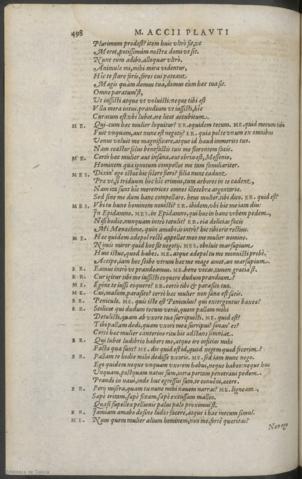 498 M. ACCII PLAVTI
Plurimum prodest: item huic vltro fit, vt
Meret, potissimum nostra domi vt sit.
Nunc eum adibo, alloquar vltro,
Animule mi, mihi mira videntur,
Hic te stare foris, fores cui pateant.
Magis quàm domus tua, domus cum hæc tua sit.
Omne paratum'st,
Vt iussisti atque vt voluisti: neque tibi est
Vlla mora intus: prandium vt iussisti, hic
Curatum est: vbi lubet, ire licet accubitum.
ME. Qui-cum hæc mulier loquitur? ER. equidem tecum. ME. quid mecum tibi
Fuit vnquam, aut nunc est negotij? ER. quia pol te vnum ex omnibus
Venus voluit me magnificare, atque id haud immerito tuo.
Nam ecastor solus benefactis tuis me florentem facis.
ME. Certè hæc mulier aut insana, aut ebria est, Messenio,
Hominem quæ ignotum compellet me tam familiariter.
MES. Dixin' ego istæc hic solere fieri? folia nunc cadunt,
Præ vt, si triduum hoc hic erimus, tum arbores in te cadent.
Nam ita sunt hic meretrices omnes elecebræ argentariæ.
Sed sine me dum hanc compellare. heus mulier, tibi dico. ER. quid est?
MES. Vbi tu hunc hominem nouisti? ER. ibidem, vbi hic me iam diu:
In Epidamno. MES. in Epidamno, qui huc in hanc vrbem pedem,
Nisi hodie, nunquam intro tetulit? ER. eia delicias facis
Mi Menæchme, quin amabo is intrò? hîc tibi erit rectius.
ME. Hæc quidem edepol rectè appellat meo me mulier nomine.
Nimis miror quid hoc sit negotij. MES. oboluit marsupium.
Huic istuc, quod habes. ME. atque edepol tu me monuisti probè.
Accipe, iam hoc scibo vtrum hæc me mage amet, an marsupium.
ER. Eamus intrò vt prandeamus. ME. bene vocas, tamen gratia st.
ER. Cur igitur tibi me iussisti coquere dudum prandium?
ME. Egone te iussi coquere? ER. certò tibi & parasito tuo.
ME. Cui, malùm, parasito? certò hæc mulier non sana est satis.
ER. Peniculo. ME. quis iste est Peniculus? qui extergentur baxeæ?
ER. Scilicet qui dudum tecum venit, quum pallam mihi
Detulisti, quam ab vxore tua surripuisti. ME. quid est?
Tibi pallam dedi, quam vxori meæ surripui? sanan' es?
Certè hæc mulier canterino ritu hic astans somniat.
ER. Qui lubet ludibrio habere me, atque ire infitias mihi
Facta quæ sunt? ME. dic quid est id, quod negem quod fecerim?
ER. Pallam te hodie mihi dedisse vxoris. ME. sed iam nunc nego.
Ego quidem neque vnquam vxorem habui, neque habeo: neque huc
Vnquam, postquam natus sum, intra portam penetraui pedem.
Prandi in naui, inde huc egressus sum, te conueni. ER.
ER. Perij misera, quam tu nunc mihi nauem narras? ME. ligneam,
Sæpe tritam, sæpe fixam, sæpe excussam malleo.
Quasi supellex pellionis palus palo proximus est.
ER. Iamiam amabo desine ludos facere, atque i hac mecum simul.
ME. Nam quem mulier alium hominem, non me, fortè quæritas?